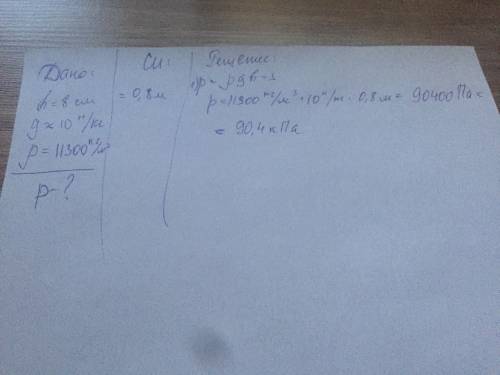 Дано:
h = 8 см
g ≈ 10 н/кг
ρ = 11300 кг/м³
p - ?
Си:
= 0,8 м
Решение:
p = ρgh =>
p = 11300 кг/м³ · 10 н/ · 0,8 м = 90400 Па =
= 90,4 кПа